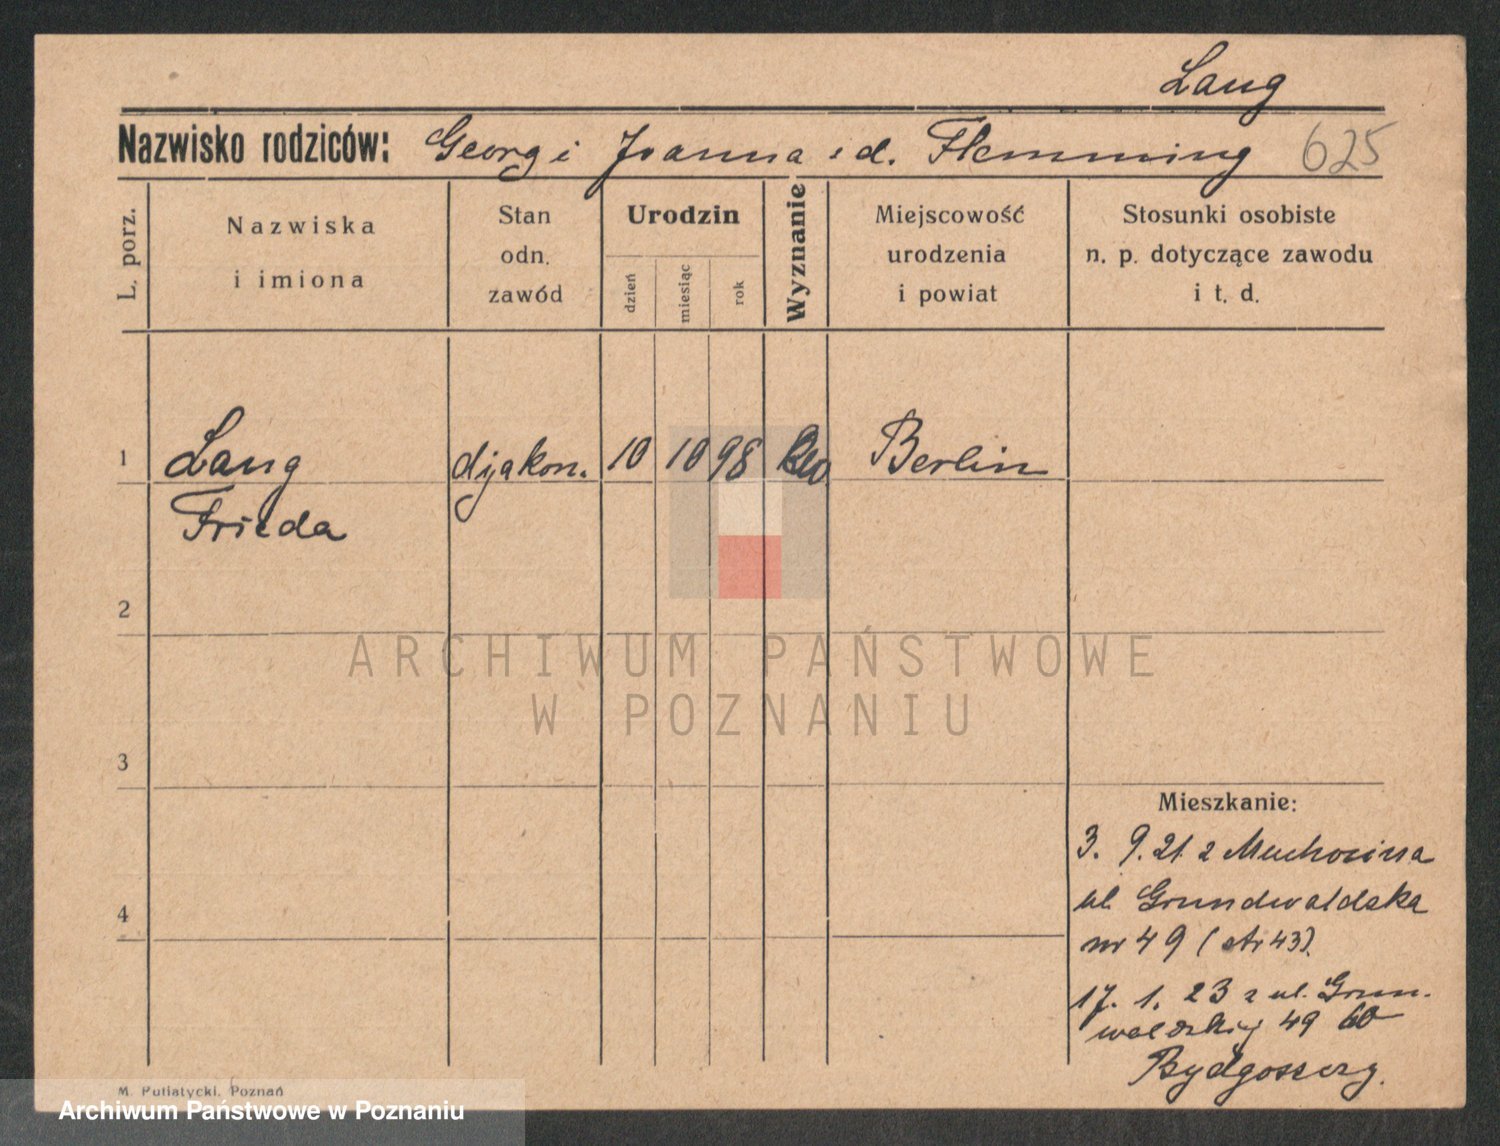 Lang
Nazwisko rodziców: Georg i Joanna z d. Flemming 625
L. porz.
Nazwiska
i imiona
Stan
odn.
zawód
Urodzin
dzień
miesiąc
rok
Wyznanie
Miejscowość
urodzenia
i powiat
Stosunki osobiste
n. p. dotyczące zawodu
i t. d.
1 Lang dyakon. 10 10 98 Berlin
Frieda
2
3
4
Mieszkanie:
3. 9. 21 z Muchocina
ul. Grundwaldska
nr 49 (str 43).
17. 1. 23 z ul. Grun-
waldzkiej 49
Bydgoszczy.
M. Putiatycki, Poznań
ARCHIWUM PAŃSTWOWE
W POZNANIU
Archiwum Państwowe w Poznaniu